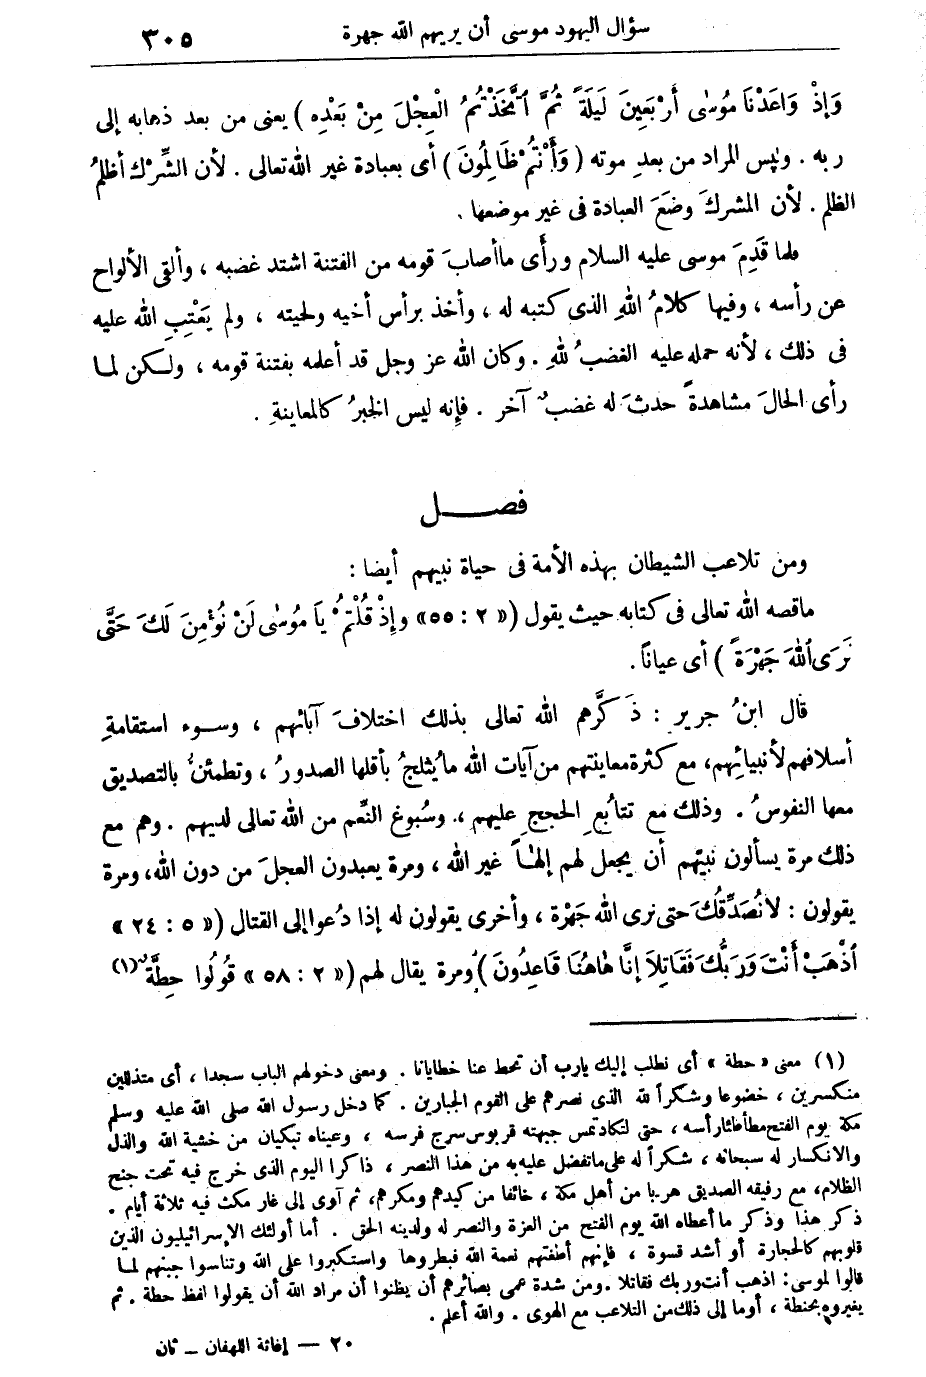 سؤال اليهود موسى أن يريهم الله جهرة ٣٠٥
وَإِذْ وَاعَدْنَا مُوسٰى أَرْبَعِينَ لَيلَةً ثُمَّ ٱتَّخَذْتُمُ الْعِجْلَ مِنْ بَعْدِهِ ) يعنى من بعد ذهابه إلى
ربه . وليس المراد من بعدِ موته ( وَأَنْتُمْ ظَالِمُونَ ) أى بعبادة غير الله تعالى . لأن الشِّرْك أظلمُ
الظلم . لأن المشركَ وضَعَ العبادة فى غير موضعها .
فلما قَدِمَ موسى عليه السلام ورأَى ما أصابَ قومه من الفتنة اشتد غضبه ، وألقى الألواح
عن رأسه ، وفيها كلامُ اللهِ الذى كتبه له ، وأخذ برأس أخيه ولحيته ، ولم يَعْتِبِ الله عليه
فى ذلك ، لأنه حمله عليه الغضبُ للهِ . وكان الله عز وجل قد أعلمه بفتنة قومه ، ولكن لما
رأى الحالَ مشاهدةً حدثَ له غضبٌ آخر . فإنه ليس الخبرُ كالمعاينةِ .
فصــــل
ومن تلاعب الشيطان بهذه الأمة فى حياة نبيهم أيضا :
ماقصه الله تعالى فى كتابه حيث يقول (« ٢ : ٥٥» وإِذْ قُلْتُمْ يَا مُوسٰى لَنْ نُؤْمِنَ لَكَ حَتَّى
نَرَى ٱللهَ جَهْرَةً ) أى عياناً .
قال ابنُ جرير : ذَكَّرهم الله تعالى بذلك اختلافَ آبائهم ، وسوء استقامةِ
أسلافهم لأنبيائِهم، مع كثرة معاينتهم من آيات الله ما يُثلجُ بأقلها الصدورُ ، وتطمئنُّ بالتصديق
معها النفوسُ . وذلك مع تتابُعِ الحججِ عليهم ، وسُبوغ النِّعم من الله تعالى لديهم . وهم مع
ذلك مرة يسألون نبيَّهم أن يجعل لهم إلهاً غير الله ، ومرة يعبدون العجلَ من دون الله، ومرة
يقولون : لا نُصَدِّقُكَ حتى نرى الله جَهْرة ، وأخرى يقولون له إذا دُعوا إلى القتال (« ٥ : ٢٤ »
ٱذْهَبْ أَنْتَ وَرَبُّكَ فَقَاتِلاَ إنَّا هَاهُنَا قَاعِدُونَ ) ومرة يقال لهم (« ٢ : ٥٨ » قُولُوا حِطَّةٌ (١)
(١) معنى « حطة » أى نطلب إليك يارب أن تحط عنا خطايانا . ومعنى دخولهم الباب سجدا ، أى متذللين
منكسرين ، خضوعا وشكراً لله الذى نصرهم على القوم الجبارين . كما دخل رسول الله صلى الله عليه وسلم
مكة يوم الفتح مطأطئا رأسه ، حتى لتكاد تمس جبهته قربوس سرج فرسه ، وعيناه تبكيان من خشية الله والذل
والانكسار له سبحانه ، شكراً له على ماتفضل عليه به من هذا النصر ، ذاكرا اليوم الذى خرج فيه تحت جنح
الظلام، مع رفيقه الصديق هربا من أهل مكة ، خائفا من كيدهم ومكرهم، ثم آوى إلى غار مكث فيه ثلاثة أيام .
ذكر هذا وذكر ما أعطاه الله يوم الفتح من العزة والنصر له ولدينه الحق . أما أولئك الإسرائيليون الذين
قلوبهم كالحجارة أو أشد قسوة ، فإنهم أطغتهم نعمة الله فبطروها واستكبروا على الله وتناسوا جبنهم لما
قالوا لموسى: اذهب أنت وربك فقاتلا . ومن شدة عمى بصائرهم أن يظنوا أن مراد الله أن يقولوا لفظ حطة . ثم
يغيروه بحنطة ، أوما إلى ذلك من التلاعب مع الهوى . والله أعلم .
٢٠ — إغاثة اللهفان ـ ثان